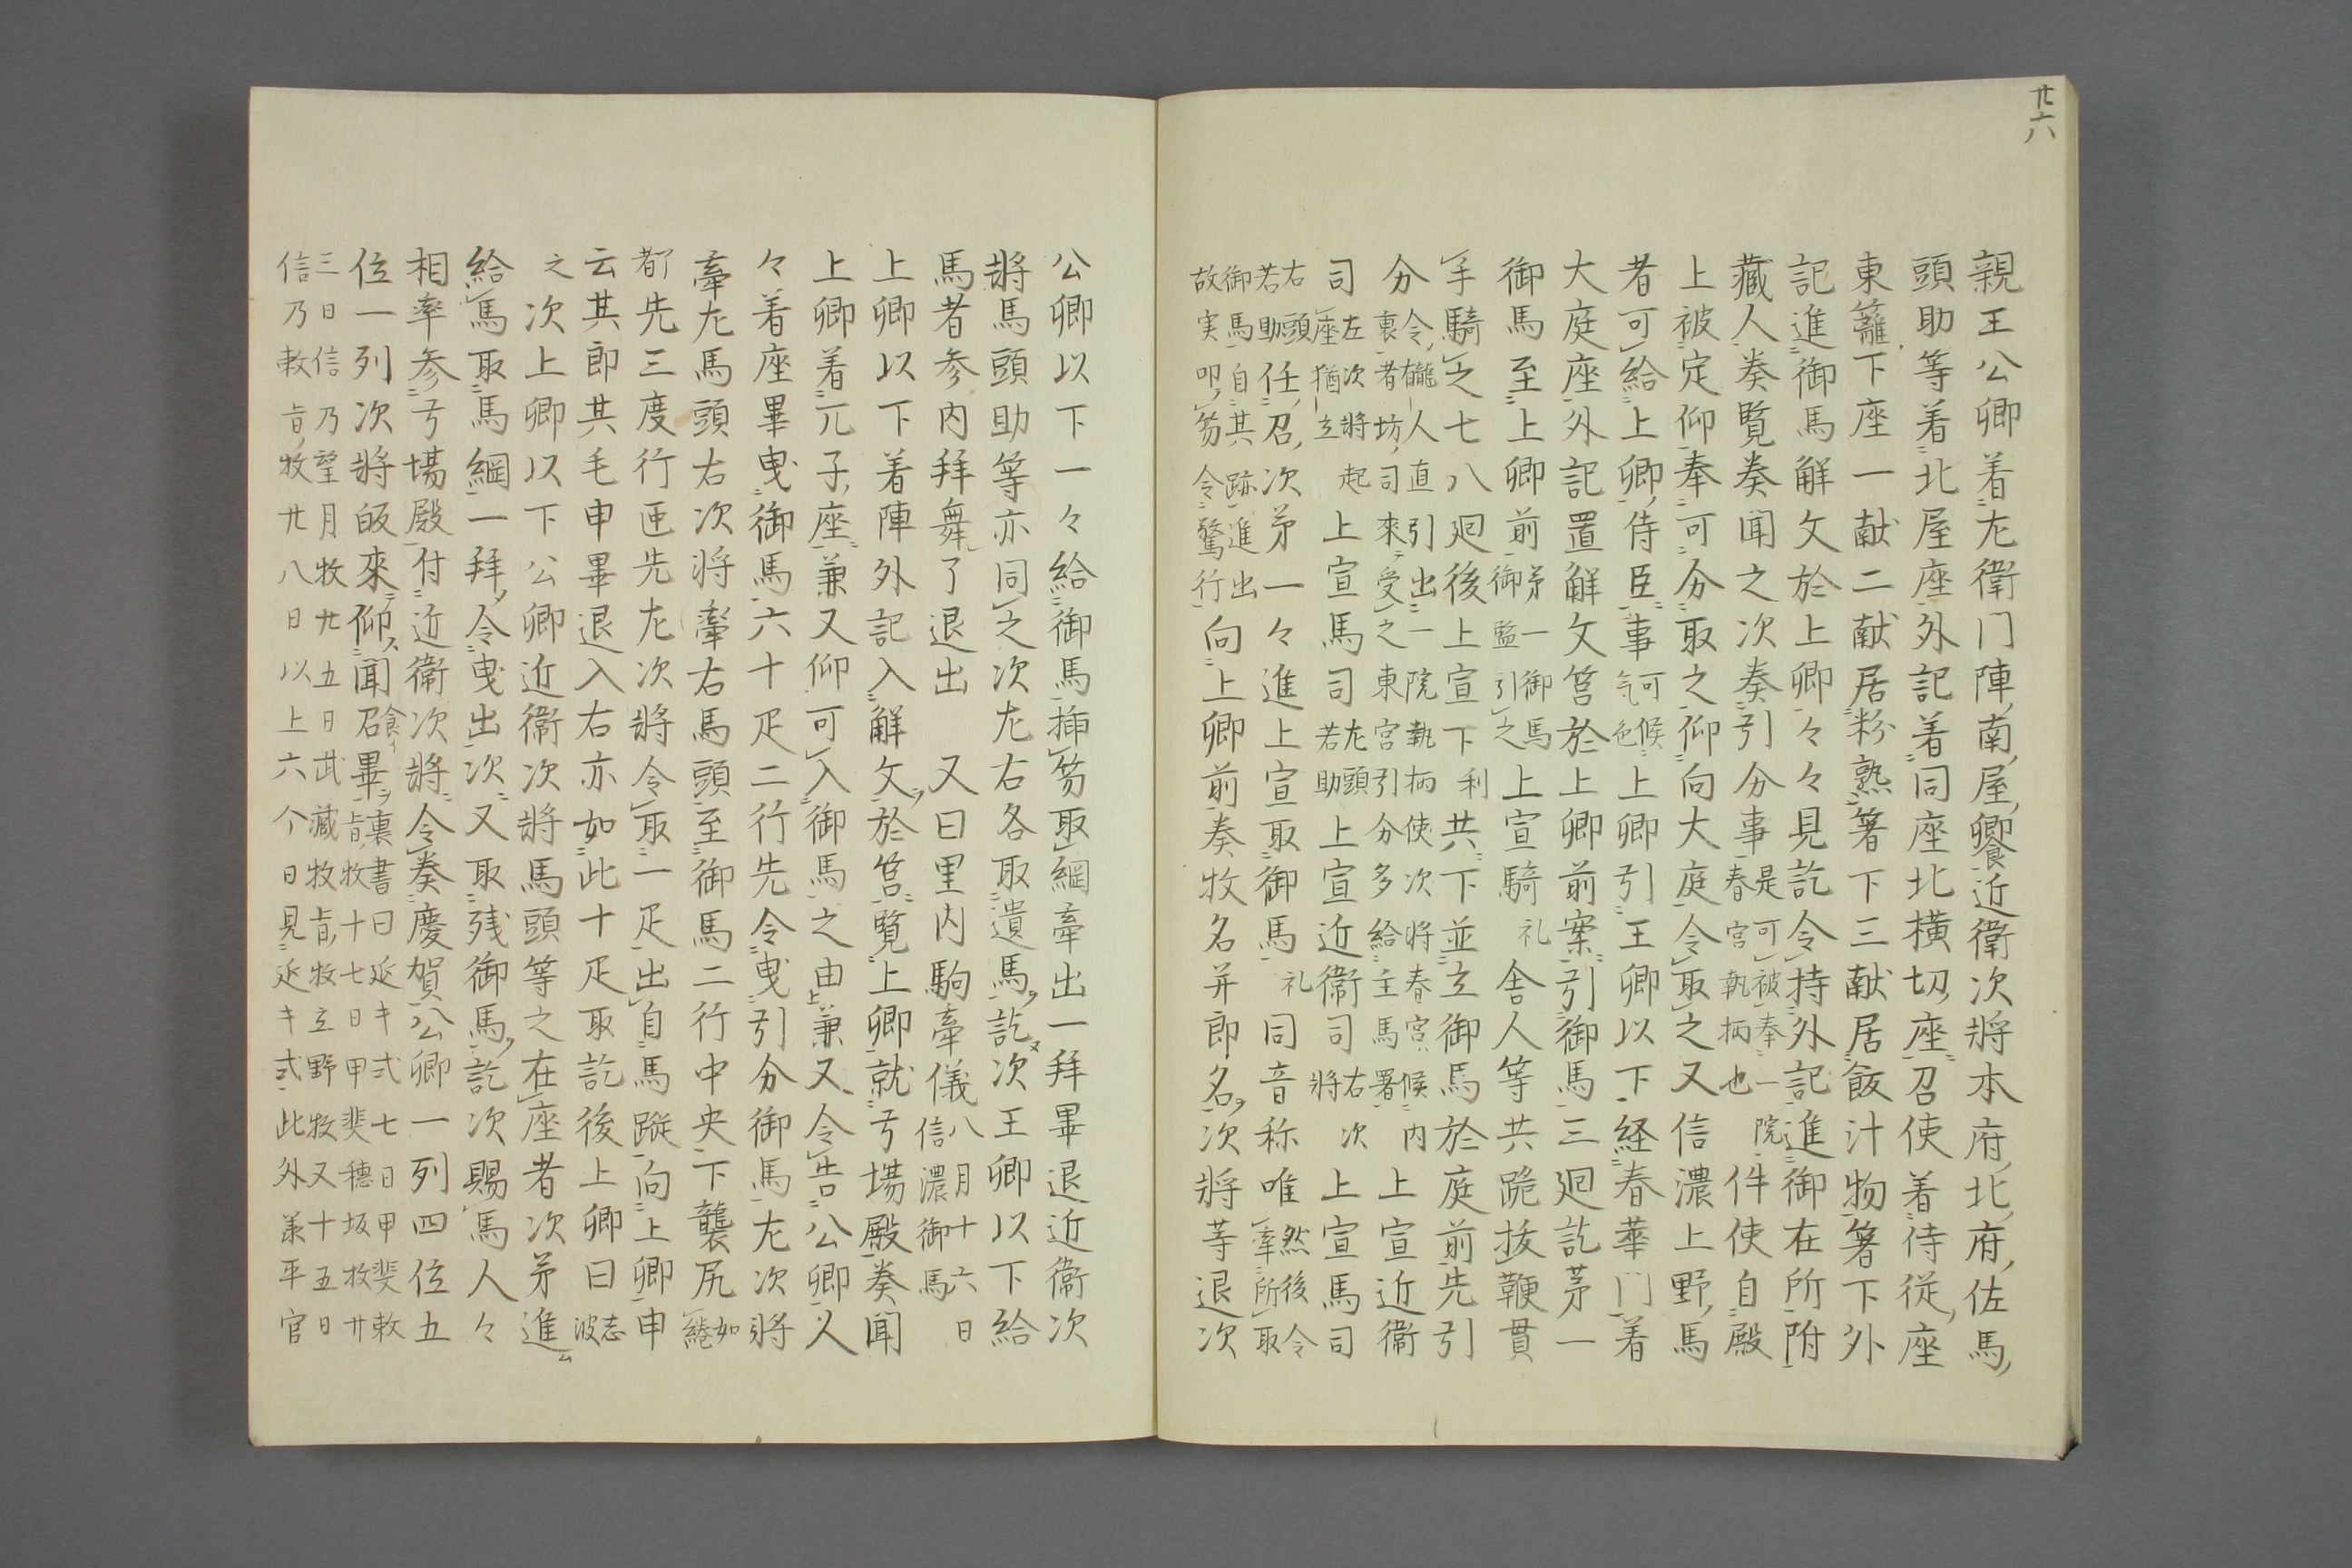 廿六
親王公卿着左衛门陣南屋饗近衛次将本府北府佐馬
頭助等着北屋座外記着同座北横切座召使着侍従座
東籬下座一献二献居粉熟箸下三献居飯汁物箸下外
記進御馬解文於上卿々々見訖令持外記進御在所附
藏人奏覧奏聞之次奏引分事是可被奉一院
春宮執柄也件使自殿
上被定仰奉可分取之仰向大庭令取之又信濃上野馬
者可給上卿侍臣事可候
気色上卿引王卿以下経春華门着
大庭座外記置解文筥於上卿前案引御馬三廻訖苐一
御馬至上卿前苐一御馬
御監引之上宣騎礼舎人等共跪抜鞭貫
手騎之七八廻後上宣下利共下並立御馬於庭前先引
分令人直引出一院執柄使次将春宮候内
裏者坊司来受之東宮引分多給主馬署上宣近衛
司左次将起
座猶立上宣馬司左頭
若助上宣近衛司右次
将上宣馬司
右頭
若助任召次苐一々進上宣取御馬礼同音称唯然後令
牽所取
御馬自其跡進出
故実叩笏令驚行向上卿前奏牧名并郎名次将等退次
公卿以下一々給御馬挿笏取綱牽出一拝畢退近衛次
将馬頭助等亦同之次左右各取遺馬訖次王卿以下給
馬者参内拝舞了退出　又曰里内駒牽儀八月十六日
信濃御馬
上卿以下着陣外記入解文於筥覧上卿就弓場殿奏聞
上卿着兀子座兼又仰可入御馬之由兼又令告公卿人
々着座畢曳御馬六十疋二行先令曳引分御馬左次将
牽左馬頭右次将牽右馬頭至御馬二行中央下襲尻如
綣
都先三度行迊先左次将令取一疋出自馬蹤向上卿申
云其郎其毛申畢退入右亦如此十疋取訖後上卿曰志
波
之次上卿以下公卿近衛次将馬頭等之在座者次苐進
給馬取馬綱一拝令曳出次又取残御馬訖次賜馬人々
相率参弓場殿付近衛次将令奏慶賀公卿一列四位五
位一列次将皈来仰聞召畢裏書曰延キ式七日甲斐敕
旨牧十七日甲斐穂坂牧廿
三日信乃望月牧廿五日武藏牧旨牧立野牧又十五日
信乃敕旨牧廿八日以上六个日見延キ式此外承平官